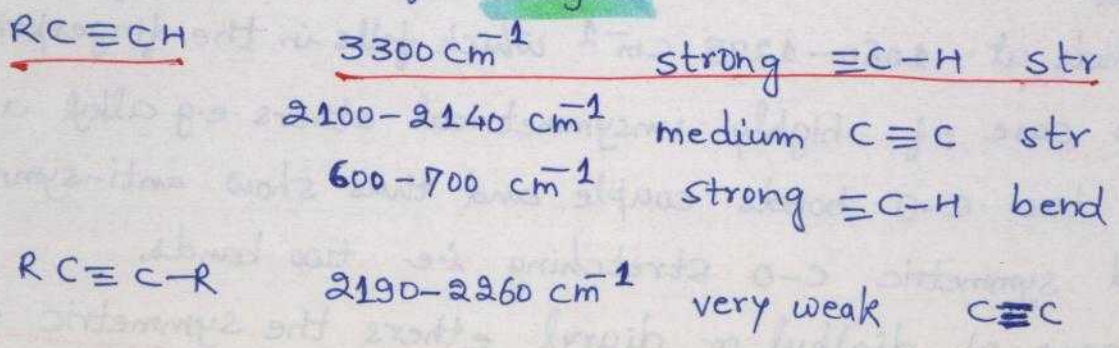 RC≡CH 3300 cm⁻¹ strong ≡C-H str
2100-2140 cm⁻¹ medium C≡C str
600-700 cm⁻¹ strong ≡C-H bend
RC≡C-R 2190-2260 cm⁻¹ very weak C≡C